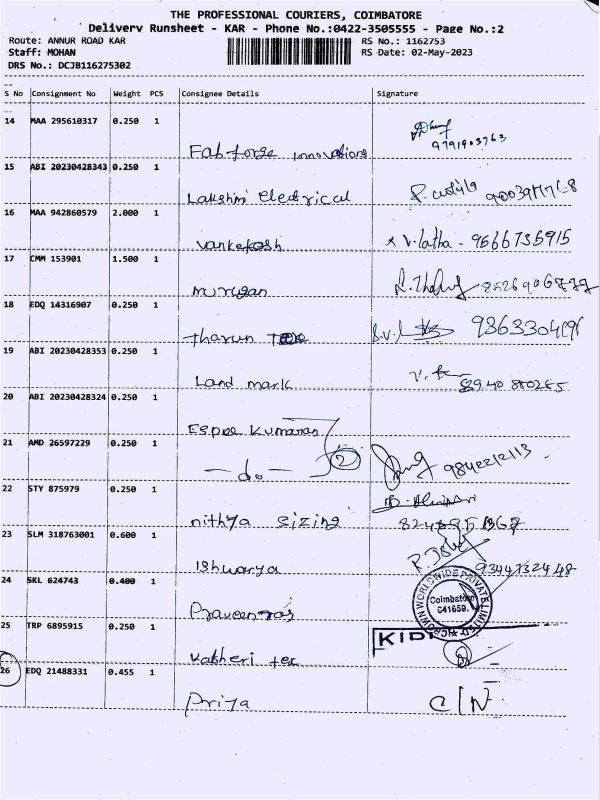 THE PROFESSIONAL COURIERS, COIMBATORE
Delivery Runsheet - KAR - Phone No.:0422-3505555 - Page No.:2
Route: ANNUR ROAD KAR RS No.: 1162753
Staff: MOHAN RS Date: 02-May-2023
DRS No.: DCJB116275302
S No Consignment No Weight PCS Consignee Details Signature
14 MAA 295610317 0.250 1
Fab forge innovations 9791903763
15 ABI 20230428343 0.250 1
Lakshmi electrical
16 MAA 942860579 2.000 1
Vanketesh x V.latha - 9666735915
17 CMM 153901 1.500 1
murugan
18 EDQ 14316907 0.250 1
Tharun
19 ABI 20230428353 0.250 1
Land mark
20 ABI 20230428324 0.250 1
Kumaran
21 AMD 26597229 0.250 1
-do- 2 9842212113
22 STY 875979 0.250 1
nithya sizing
23 SLM 318763001 0.600 1
Ishwarya
24 SKL 624743 0.400 1
Praveen raj Coimbatore 641659.
25 TRP 6895915 0.250 1
tex KIDI
26 EDQ 21488331 0.455 1
Priya C/N